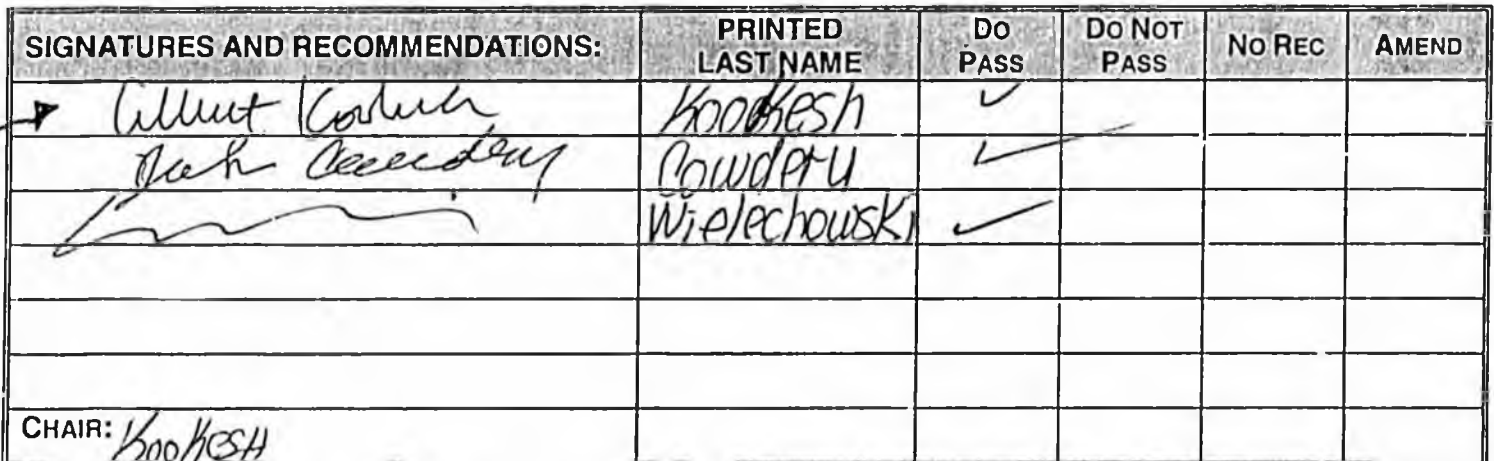 SIGNATURES AND RECOMMENDATIONS: PRINTED LAST NAME DO PASS DO NOT PASS NO REC AMEND
Kookesh ✓
Cowdery ✓
Wielechowski ✓
CHAIR: Kookesh